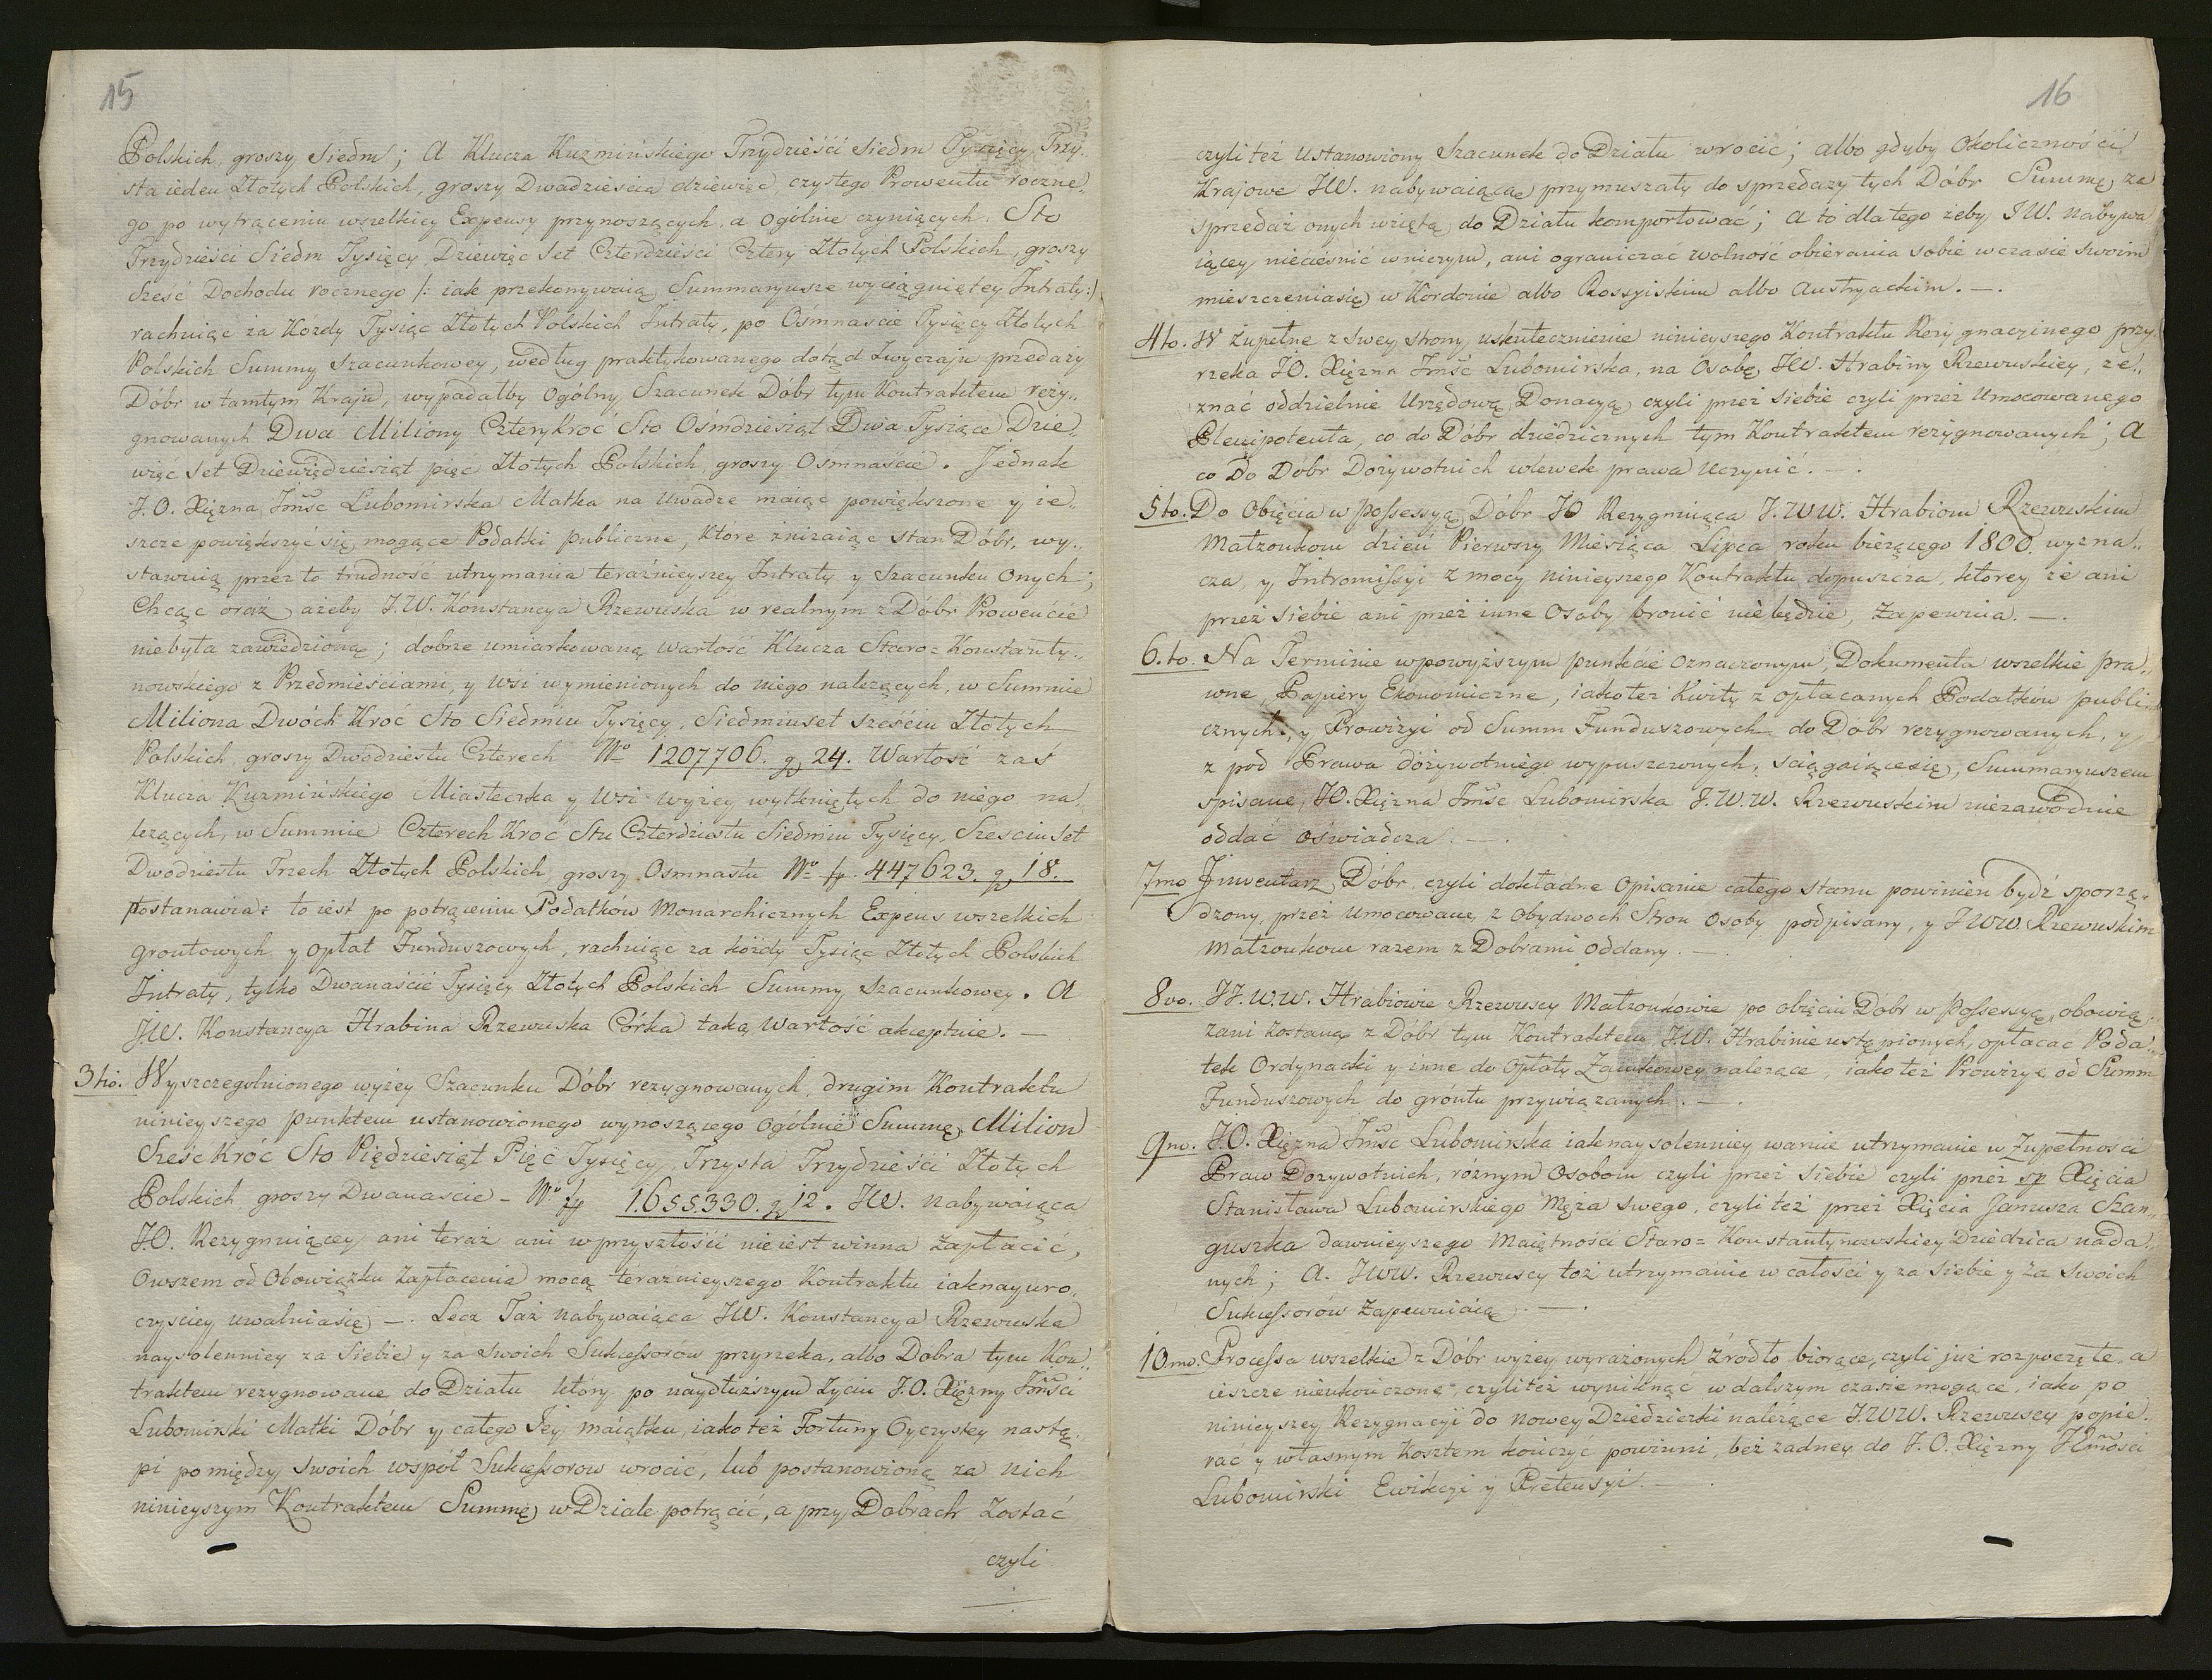 15
Polskich, groszy Siedm; A Klucza Kuzmińskiego Trzydzieści Siedm Tysięcy Trzy„
sta ieden Złotych Polskich, groszy Dwadzieścia dziewięć, czystego Prowentu roczne„
go po wytrąceniu wszelkiey Expensy przynoszących, a ogólnie czyniących. Sto
Trzydzieści Siedm Tysięcy Dziewięć Set Czterdzieści Cztery Złotych Polskich, groszy
Sześć Dochodu rocznego /: iak przekonywaią Summaryusze wyciągniętey Intraty :/
rachuiąc za Kożdy Tysiąc Złotych Polskich Intraty, po Ośmnaście Tysięcy Złotych
Polskich Summy Szacunkowey, według praktykowanego dotąd Zwyczaju przedaży
Dóbr w tamtym Kraju, wypadałby Ogólny Szacunek Dóbr tym Kontraktem rezy„
gnowanych Dwa Miliony Czterykroć Sto Ośmdziesiąt Dwa Tysiące Dzie„
więć Set Dziewięćdziesiąt pięć Złotych Polskich, groszy Osmnaście. Jednak
J.O. Xiężna Jmść Lubomirska Matka na uwadze maiąc powiększone y ie„
szcze powiększyć się mogące Podatki publiczne, które zniżaiąc stan Dóbr, wy„
stawuią przez to trudność utrzymania teraźnieyszey Intraty y Szacunku onych;
Chcąc oraz, ażeby J.W. Konstancya Rzewuska w realnym z Dóbr Prowencie
niebyła zawiedzioną; dobrze umiarkowaną wartość Klucza Staro=Konstanty„
nowskiego z Przedmieściami, y Wsi wymienionych do niego należących, w Summie
Miliona Dwóch Kroć Sto Siedmiu Tysięcy, Siedmiuset sześciu Złotych
Polskich, groszy Dwódziestu Czterech No 1207706. g 24. Wartość zaś
Klucza Kuzmińskiego Miasteczka y Wsi wyżey wytkniętych do niego na„
leżących, w Summie Czterech Kroć Stu Czterdziestu Siedmiu Tysięcy, Sześciu Set
Dwodziestu Trzech Złotych Polskich, groszy Osmnastu No fp. 447623. g 18.
Postanawia: to iest po potrąceniu Podatków Monarchicznych Expens wszelkich
gróntowych y opłat Funduszowych, rachuiąc za kożdy Tysiąc Złotych Polskich
Intraty, tylko Dwanaście Tysięcy Złotych Polskich Summy Szacunkowey. A
J.W. Konstancya Hrabina Rzewuska Córka taką Wartość akceptuie. —
3tio. Wyszczegulnionego wyżey Szacunku Dóbr rezygnowanych, drugim Kontraktu
ninieyszego punktem ustanowionego wynoszącego Ogólnie Summę, Milion
Sześć Króć Sto Piędziesiąt Pięć Tysięcy, Trzysta Trzydzieści Złotych
Polskich groszy Dwanaście - No fp 1.655.330. g 12. JW. nabywaiąca
J.O. Rezygnuiącey ani teraz ani w przyszłości nieiest winna Zapłacić,
Owszem od Obowiązku Zapłacenia mocą teraznieyszego Kontraktu iaknayuro„
czyściey uwalniasię —. Lecz Taż nabywaiąca JW. Konstancya Rzewuska
naysolenniey za Siebie y za swoich Sukcessorow przyrzeka, albo Dobra tym Kon„
traktem rezygnowane do Działu który po naydłuższym Życiu J.O. Xiężny Jmści
Lubomirski Matki Dóbr y całego Jey maiątku, iakoteż Fortuny Oyczystey nastą„
pi pomiędzy swoich współ Sukcessorow wrocić, lub postanowioną za nich
ninieyszym Kontraktem Summę w Dziale potrącić, a przy Dobrach zostać
czyli
16
czyli też ustanowiony Szacunek do Działu wrócić; albo gdyby okoliczności
Krajowe JW. nabywaiącą przymuszały do sprzedaży tych Dóbr Summę za
sprzedaż onych wziętą do Działu komportować; a to dla tego żeby JW. nabywa
iącey nieciesnić w niczym, ani ograniczać wolność obierania sobie w czasie swoim
mieszczeniasię w Kordonie albo Rossyiskim albo Austryackim. —.
4to. W Zupełne z swey strony uskutecznienie ninieyszego Kontraktu Rezygnacyinego przy„
rzeka J.O. Xiężna Jmść Lubomirska, na Osobę JW. Hrabiny Rzewuskiey, ze„
znać oddzielnie Urzędową Donacyą czyli przez siebie czyli przez Umocowanego
Plenipotenta, co do Dóbr dziedzicznych tym Kontraktem rezygnowanych; A
co do Dóbr Dożywotnich wlewek prawa uczynić. —.
5to. Do Obięcia w possessyą Dóbr JO Rezygnuiąca J.WW. Hrabiom Rzewuskim
Małżonkom dzień Pierwszy Miesiąca Lipca roku bieżącego 1800. wyzna„
cza, y Intromissyi z mocy ninieyszego Kontraktu dopuszcza, ktorey że ani
przez siebie ani przez inne Osoby bronić niebędzie, Zapewnia. —.
6.to. Na Terminie w powyższym punkcie oznaczonym, Dokumenta wszelkie pra„
wne, Papiery Ekonomiczne, iako też Kwity z opłacanych Podatków publi„
cznych, y Prowizyi od Summ Funduszowych do Dóbr rezygnowanych, y
z pod Prawa dożywotniego wypuszczonych, sciągaiącesię, Summaryuszem
spisane, J.O. Xiężna Jmść Lubomirska J.W.W. Rzewuskim niezawodnie
oddać oświadcza. —.
7mo Jnwentarz Dóbr, czyli dokładne Opisanie całego stanu powinien bydź sporzą„
dzony, przez umocowane z obydwoch Stron osoby podpisany, y JWW. Rzewuskim
Małżonkom razem z Dobrami oddany. —.
8vo. JJ.W.W. Hrabiowie Rzewuscy Małżonkowie po obięciu Dóbr w possessyą, obowią„
zani zostaną z Dóbr tym Kontraktem JW. Hrabinie ustąpionych, opłacać Poda„
tek Ordynacki y inne do Opłaty Zamkowey należące, iako też Prowizye od Summ
Funduszowych do gróntu przywiązanych. —.
9no. J.O. Xiężna Jmść Lubomirska iaknaysolenniey waruie utrzymanie w Zupełności
Praw Dożywotnich, różnym Osobom czyli przez siebie czyli przez sp Xięcia
Stanisława Lubomirskiego Męża swego, czyli też przez Xięcia Janusza Szan„
guszka dawnieyszego Maiętności Staro=Konstantynowskiey Dziedzica nada„
nych; A. JWW. Rzewuscy toż utrzymanie w całości y za siebie y za swoich
Sukcessorów Zapewniaią. —.
10.mo. Processa wszelkie z Dóbr wyżey wyrażonych źrodło biorące, czyli już rozpoczęte, a
ieszcze nieukończone, czyliteż wyniknąć w dalszym czasie mogące, iako po
ninieyszey Rezygnacyi do nowey Dziedziczki należące J.WW. Rzewuscy popie„
rać y własnym kosztem kończyć powinni, bez żadney do J.O. Xiężny Jmości
Lubomirski Ewikcyi y Pretensyi. —.